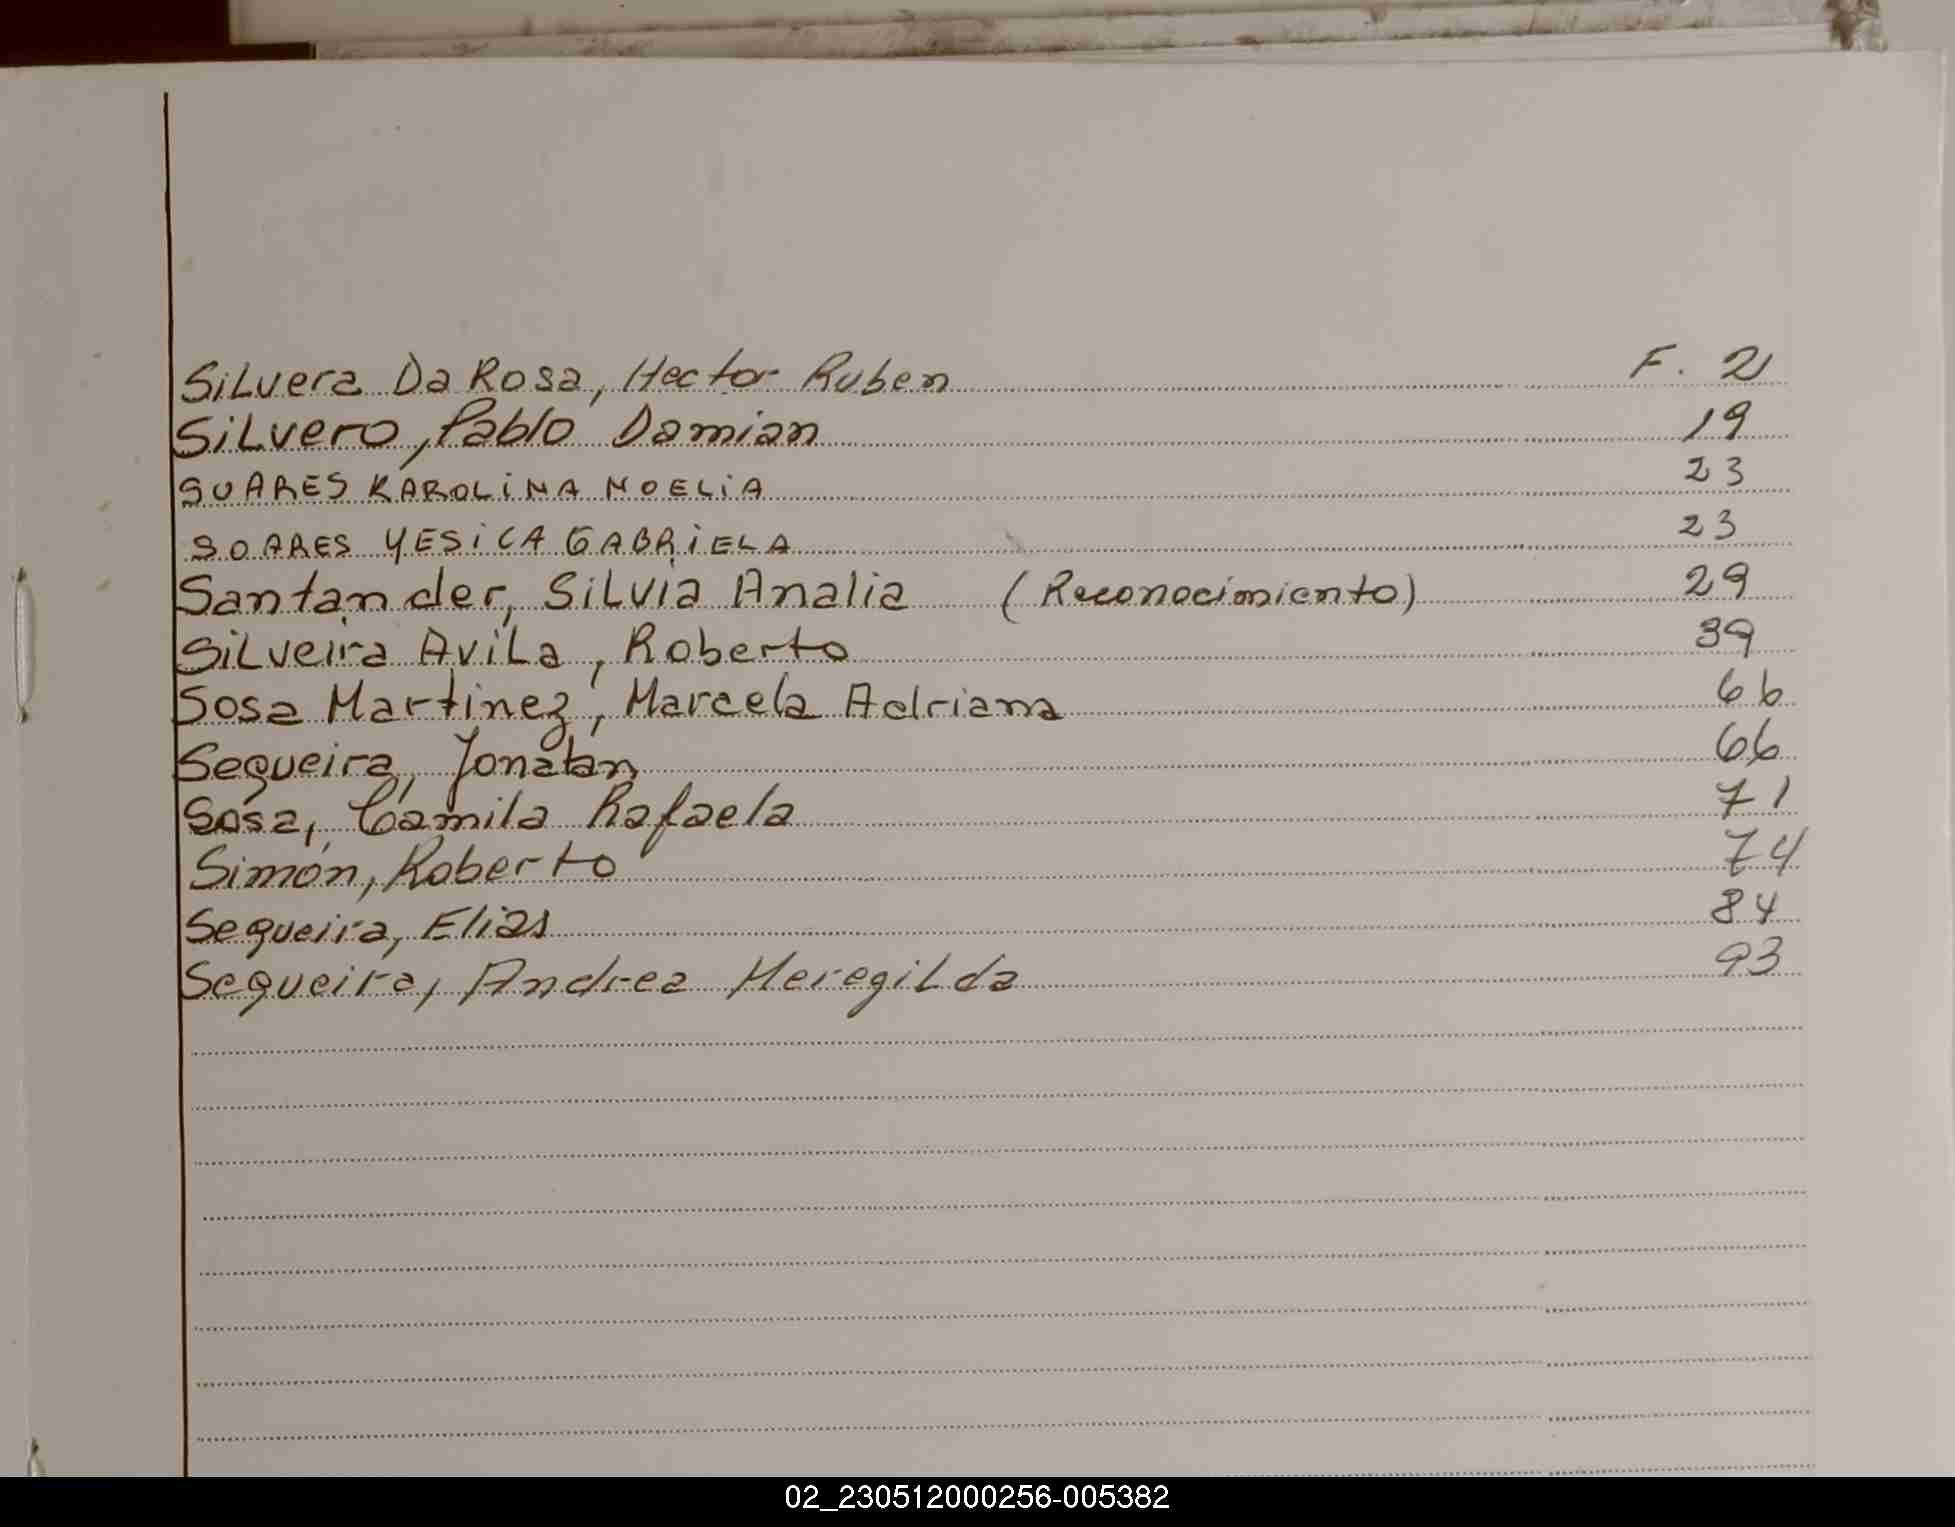 Silvera Da Rosa, Hector Ruben F. 2
Silvero, Pablo Damian 19
SUARES KAROLINA NOELIA 23
SOARES YESICA GABRIELA 23
Santander, Silvia Analia (Reconocimiento) 29
Silveira Avila, Roberto 39
Sosa Martinez, Marcela Adriana 66
Sequeira, Jonatan 66
Sosa, Camila Rafaela 71
Simón, Roberto 74
Sequeira, Elias 84
Sequeira, Andrea Heregilda 93
02_230512000256-005382